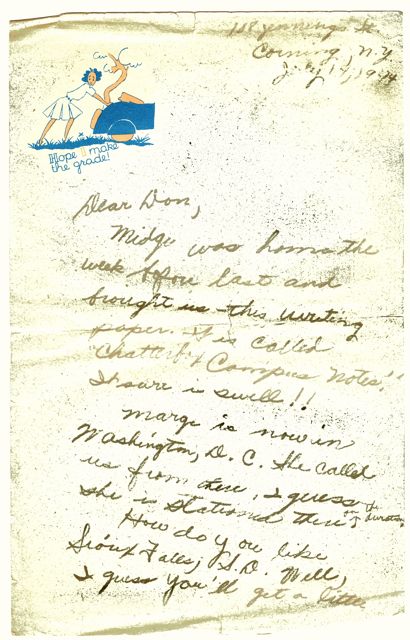 118 Jennings St
Corning, N.Y.
July 19, 1944
Hope I make
the grade!
Dear Don,
Midge was home the
week before last and
brought us this writing
paper. It is called
Chatterbox Campus Notes!!
It sure is swell!!
Marge is now in
Washington, D. C. She called
us from there, I guess
she is stationed there for duration
How do you like
Sioux Falls, S.D. Well,
I guess you'll get a little